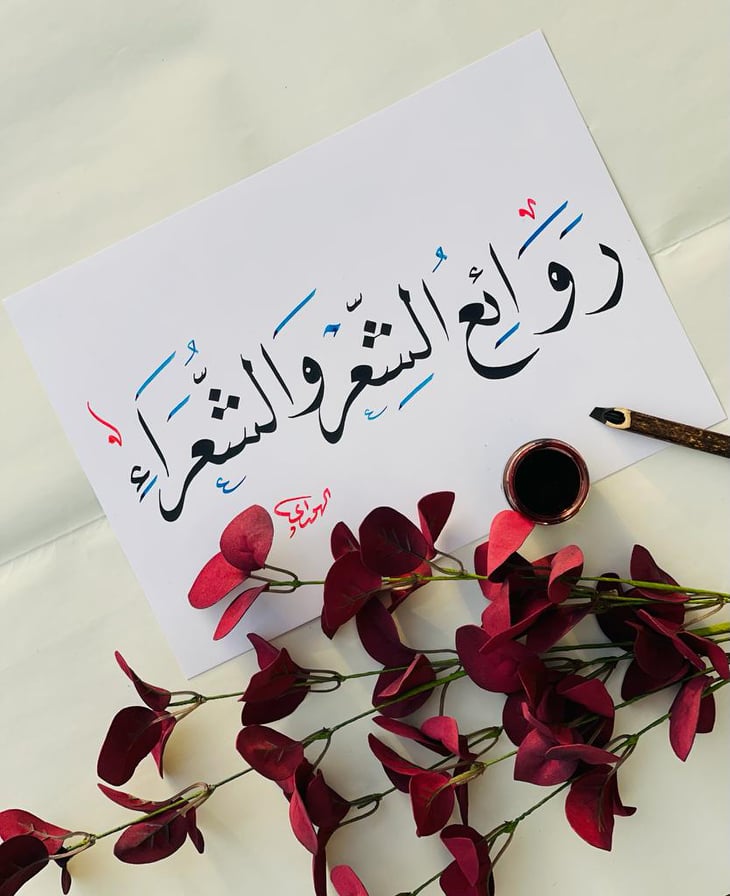 رَوَائِعُ الشِّعْرِ وَالشُّعَرَاءِ